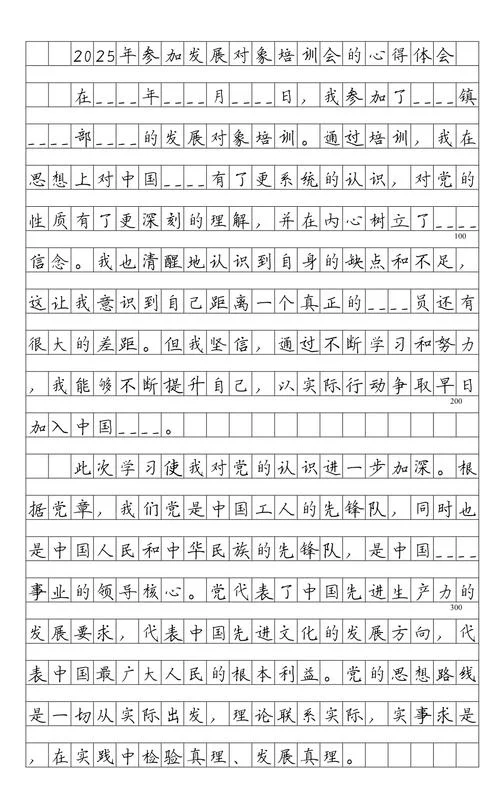 2025年参加发展对象培训会的心得体会
在____年____月____日，我参加了____镇
____部____的发展对象培训。通过培训，我在
思想上对中国____有了更系统的认识，对党的
性质有了更深刻的理解，并在内心树立了____
100
信念。我也清醒地认识到自身的缺点和不足，
这让我意识到自己距离一个真正的____员还有
很大的差距。但我坚信，通过不断学习和努力
，我能够不断提升自己，以实际行动争取早日
200
加入中国____。
此次学习使我对党的认识进一步加深。根
据党章，我们党是中国工人的先锋队，同时也
是中国人民和中华民族的先锋队，是中国____
事业的领导核心。党代表了中国先进生产力的
300
发展要求，代表中国先进文化的发展方向，代
表中国最广大人民的根本利益。党的思想路线
是一切从实际出发，理论联系实际，实事求是
，在实践中检验真理、发展真理。